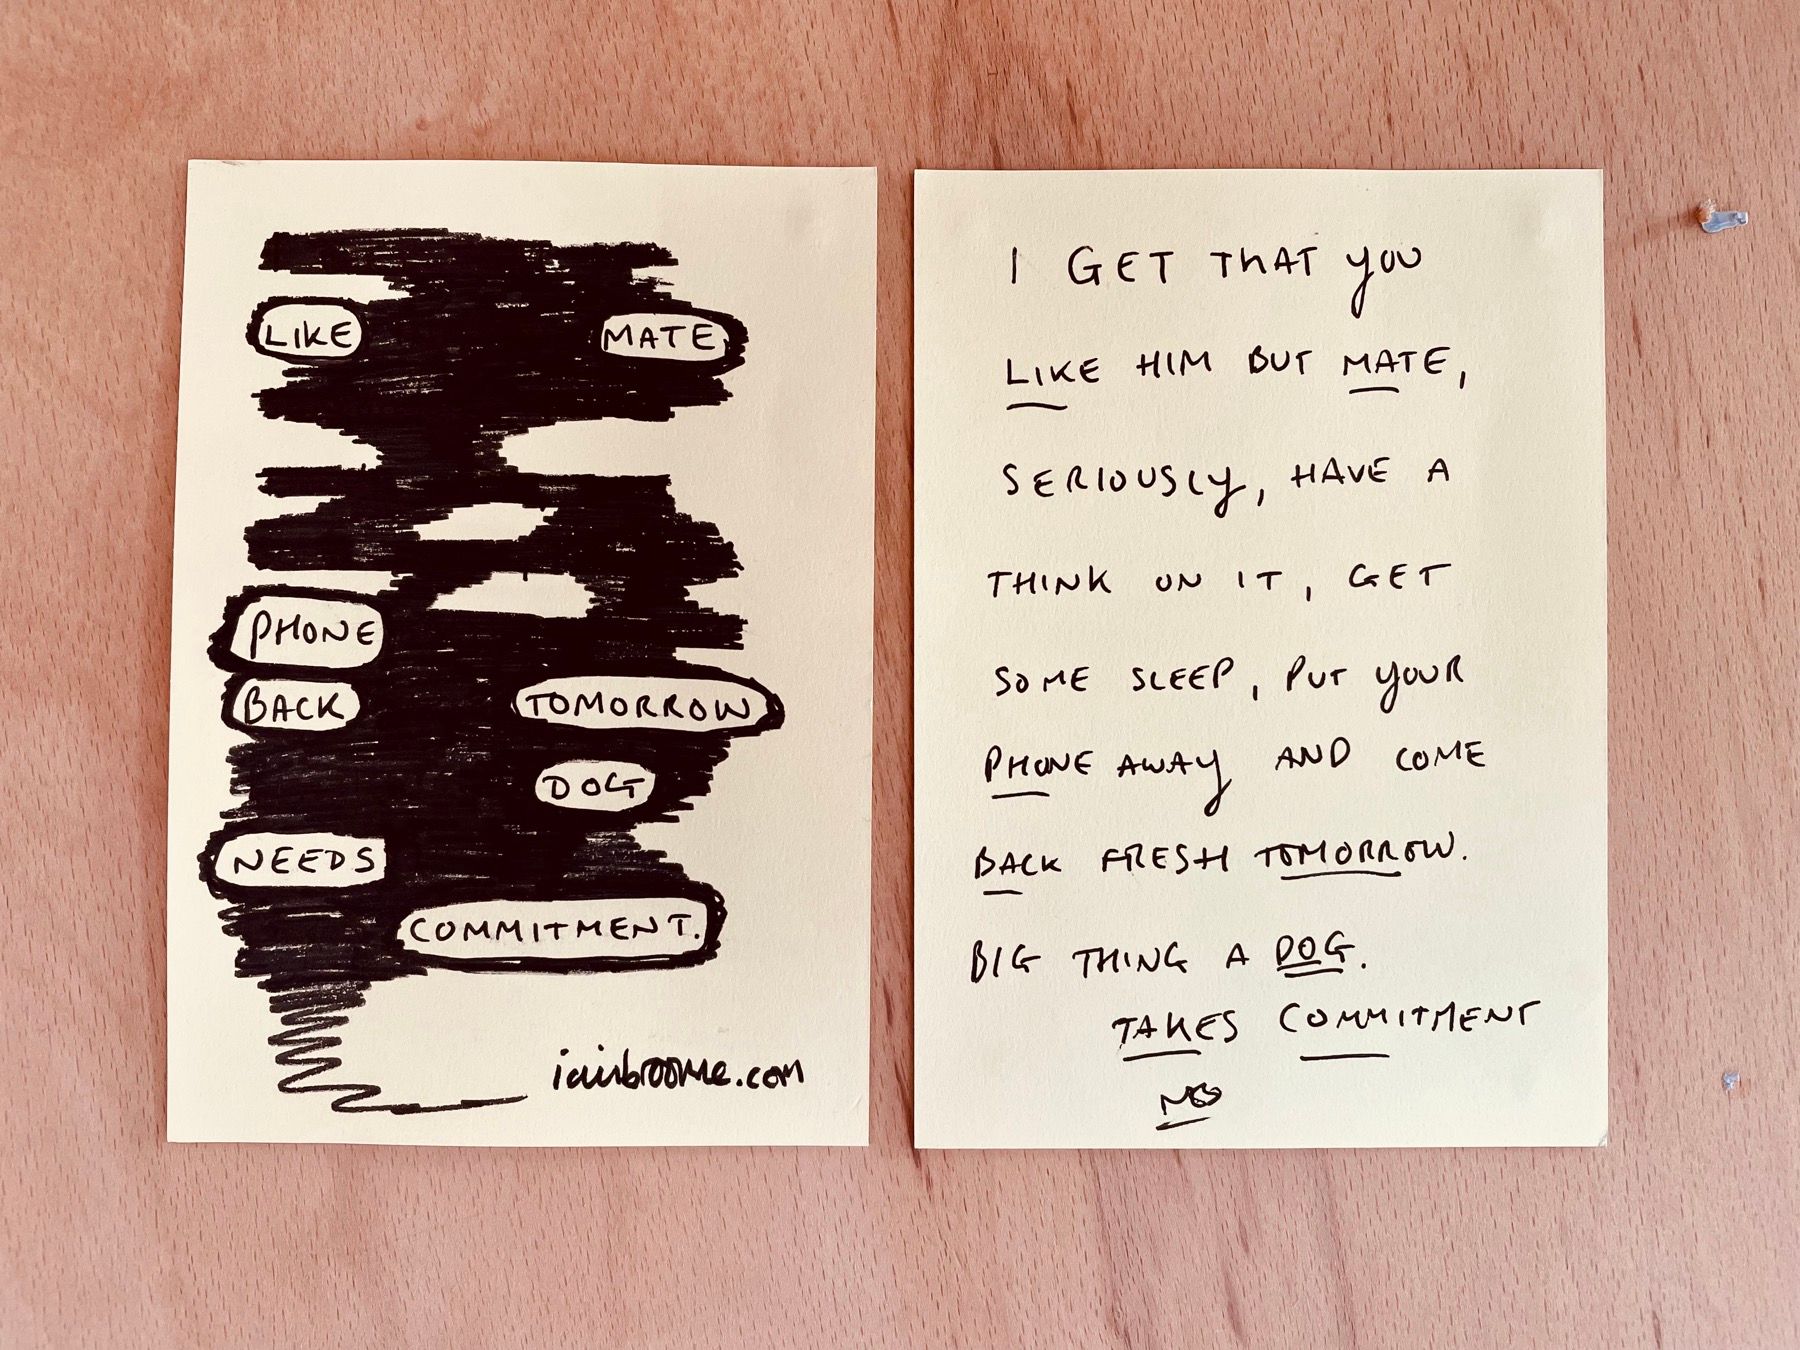 LIKE MATE,
PHONE
BACK TOMORROW
DOG
NEEDS
COMMITMENT.
iainbroome.com
I GET THAT YOU
LIKE HIM BUT MATE,
SERIOUSLY, HAVE A
THINK ON IT, GET
SOME SLEEP, PUT YOUR
PHONE AWAY AND COME
BACK FRESH TOMORROW.
BIG THING A DOG.
TAKES COMMITMENT